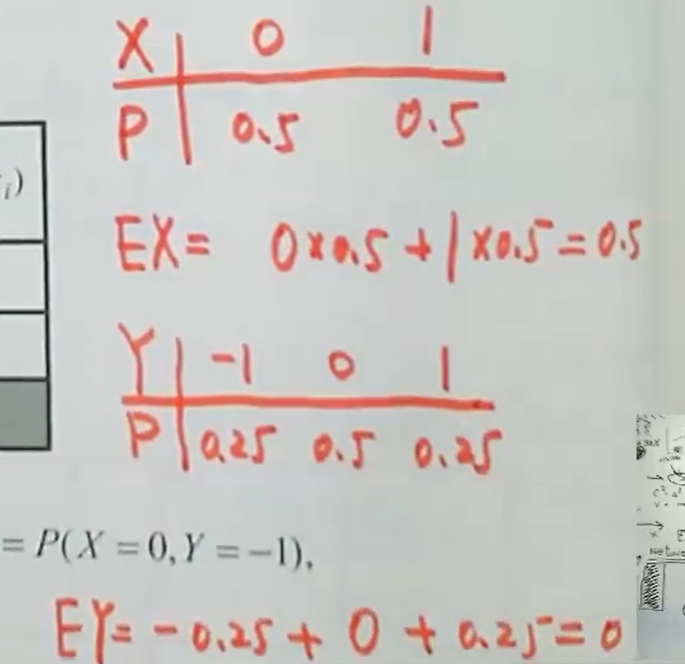 X 0 1
P 0.5 0.5
i)
EX= 0×0.5+1×0.5=0.5
Y -1 0 1
P 0.25 0.5 0.25
= P(X = 0, Y = −1),
EY= -0.25 + 0 + 0.25 = 0